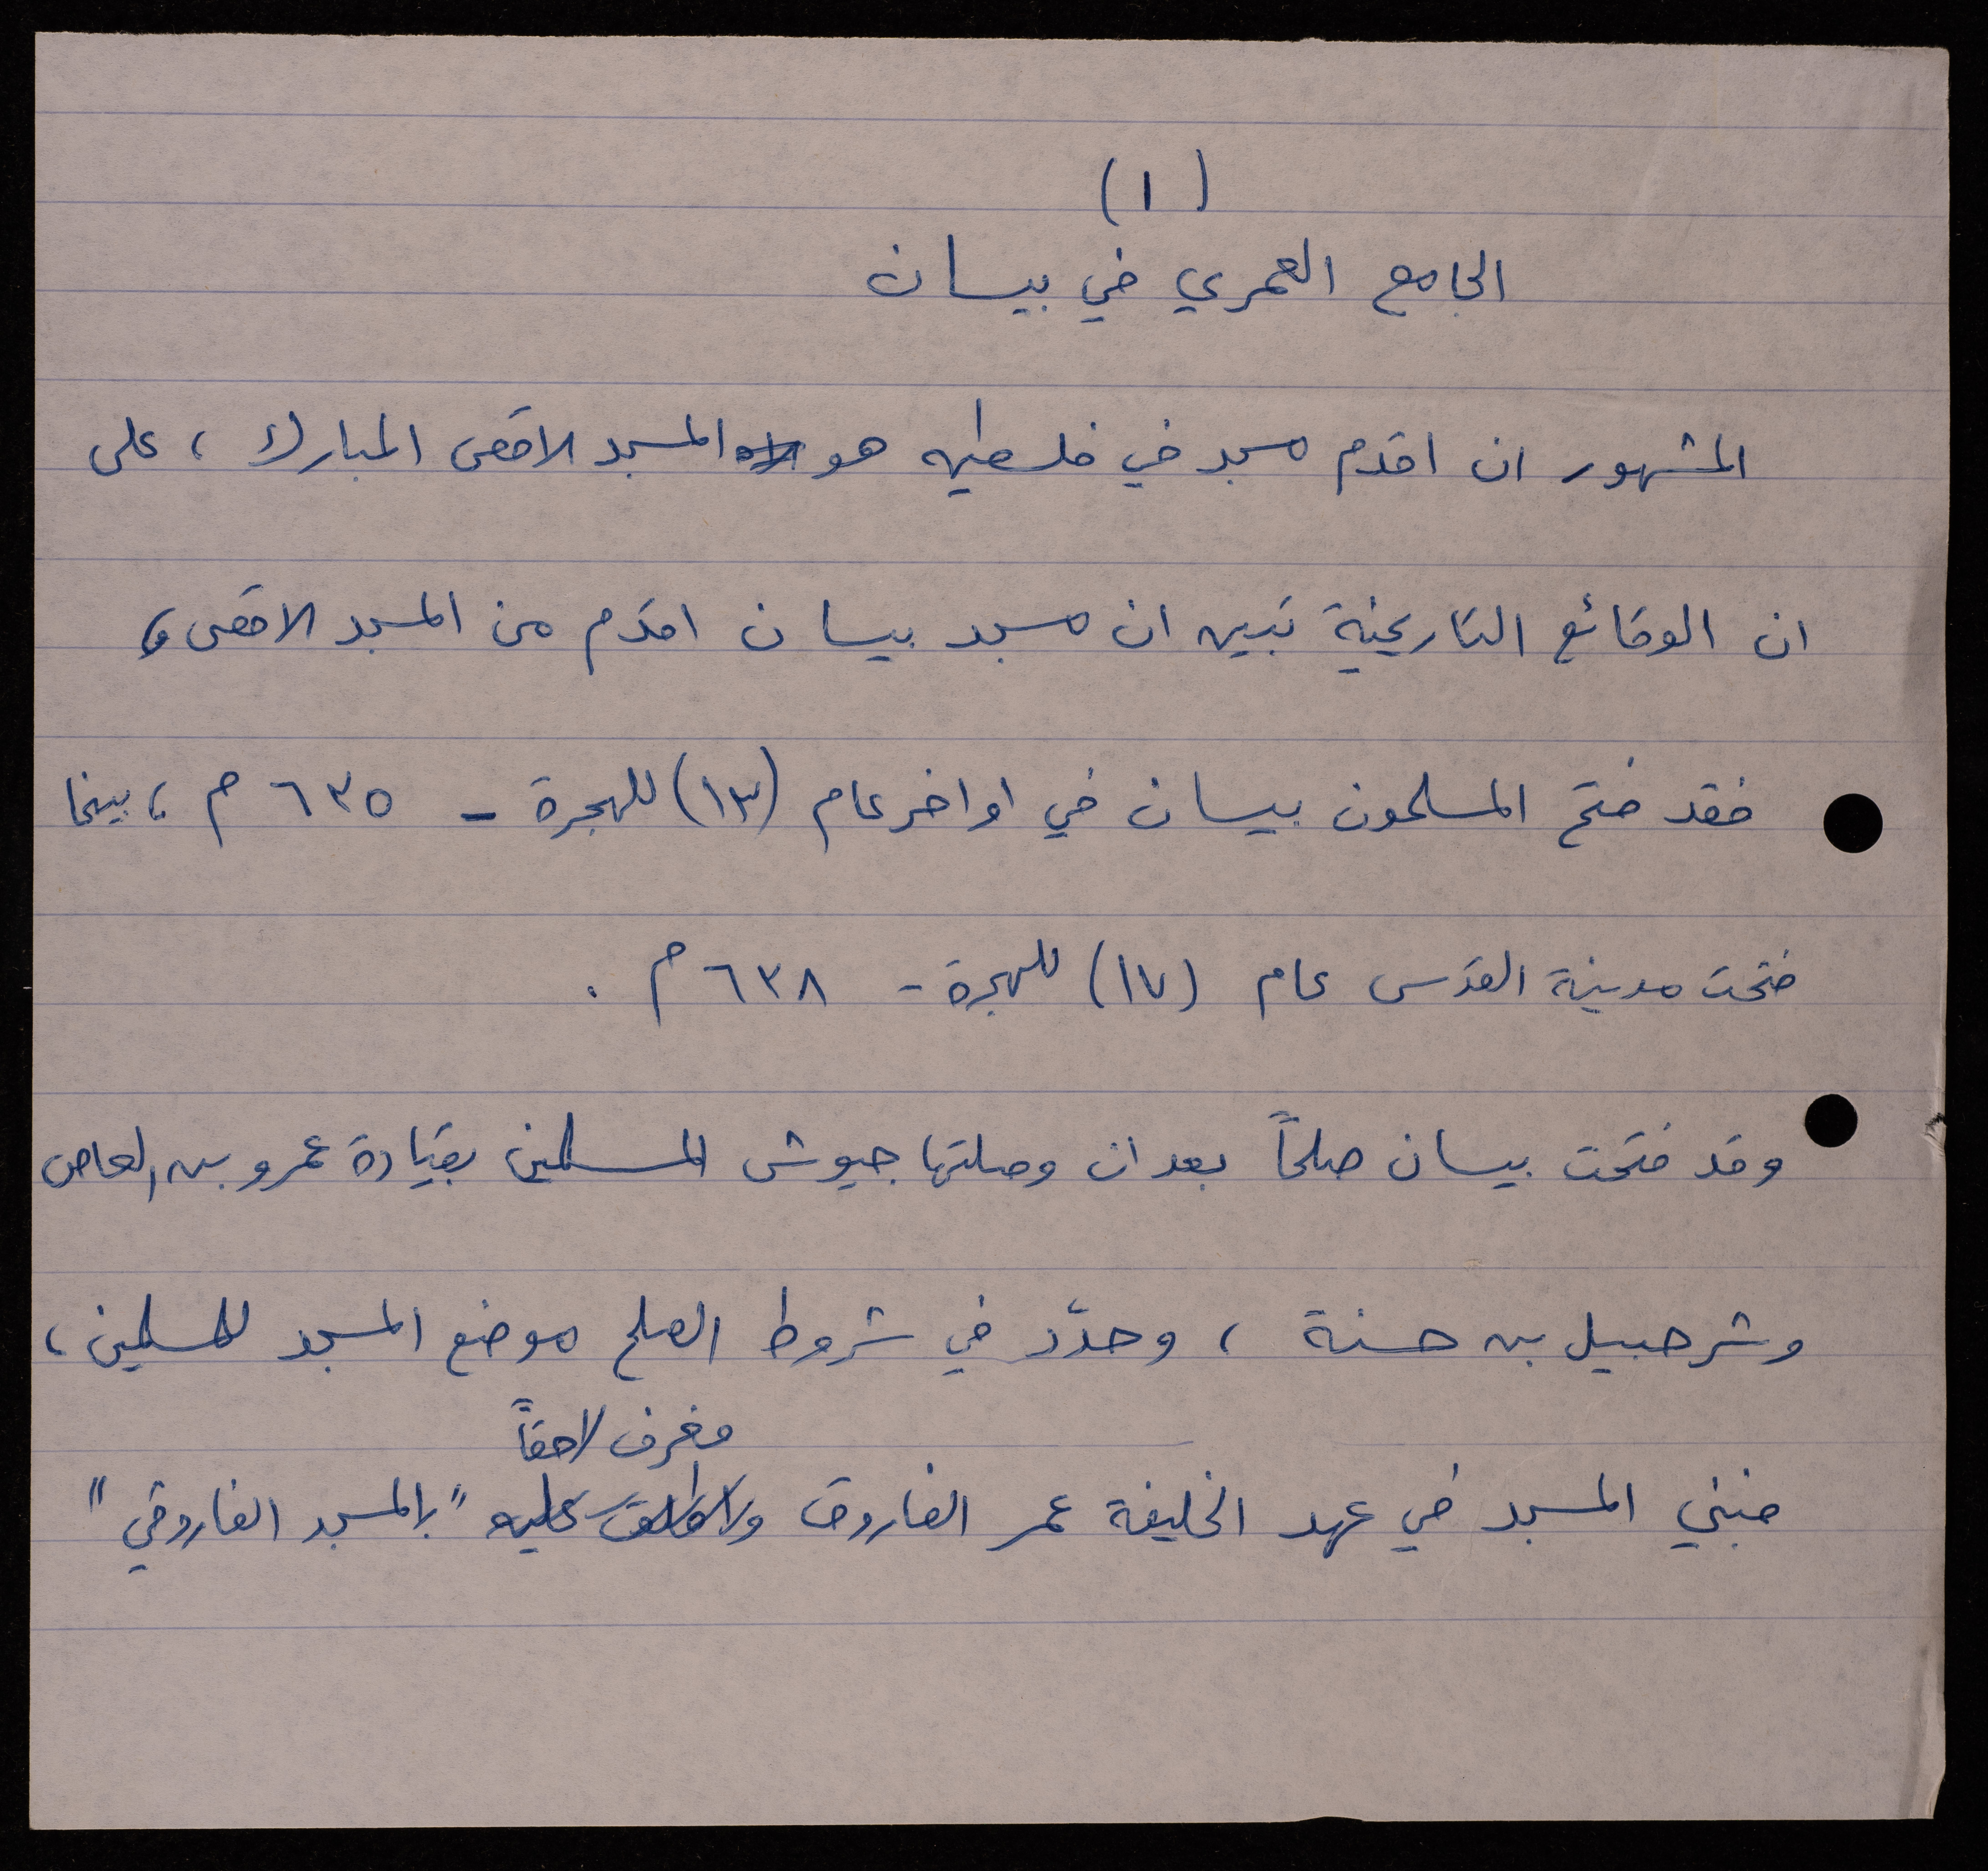 (١)
الجامع العمري في بيسان
المشهور ان اقدم مسجد في فلسطين هو المسجد الاقصى المبارك ، على
ان الوقائع التاريخية تبين ان مسجد بيسان اقدم من المسجد الاقصى ،
فقد فتح المسلمون بيسان في اواخر عام (١٣) للهجرة - ٦٣٥ م ، بينما
فتحت مدينة القدس عام (١٧) للهجرة - ٦٣٨ م .
وقد فتحت بيسان صلحاً بعد ان وصلتها جيوش المسلمين بقيادة عمرو بن العاص
وشرحبيل بن حسنة ، وحدّد في شروط الصلح موضع المسجد للمسلمين ،
فعُرف لاحقاً
فبني المسجد في عهد الخليفة عمر الفاروق واطلق عليه "بالمسجد الفاروقي"